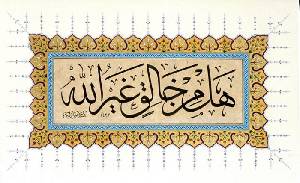 هل من خالق غير الله